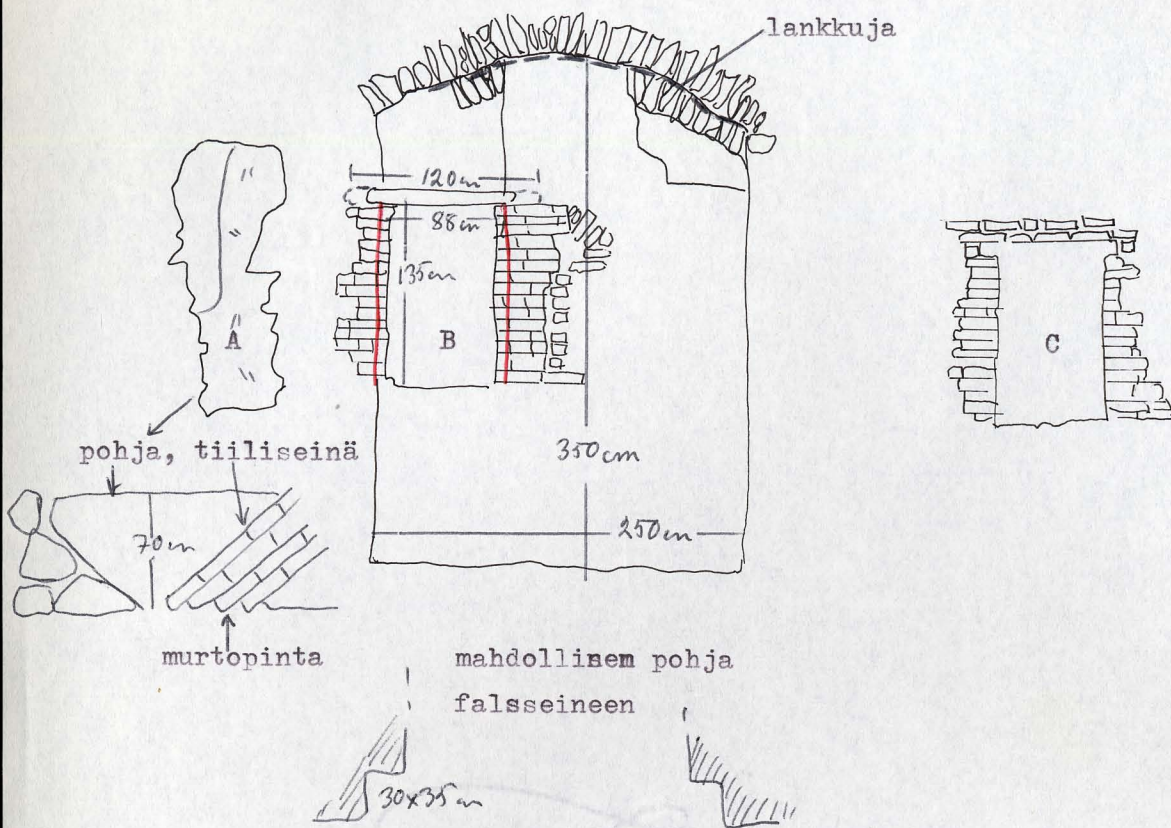 lankkuja
120cm
88cm
135cm
A
B
C
pohja, tiiliseinä
350cm
70cm
250cm
murtopinta
mahdollisem pohja
falsseineen
30x35cm